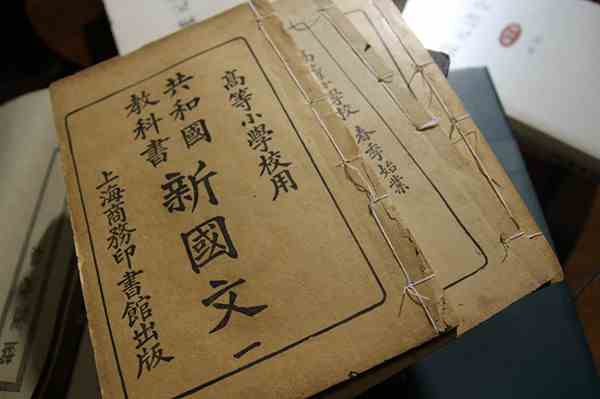 高等小學校用
共和國
教科書
新國文 一
上海商務印書館出版
高等小學校 春季始業